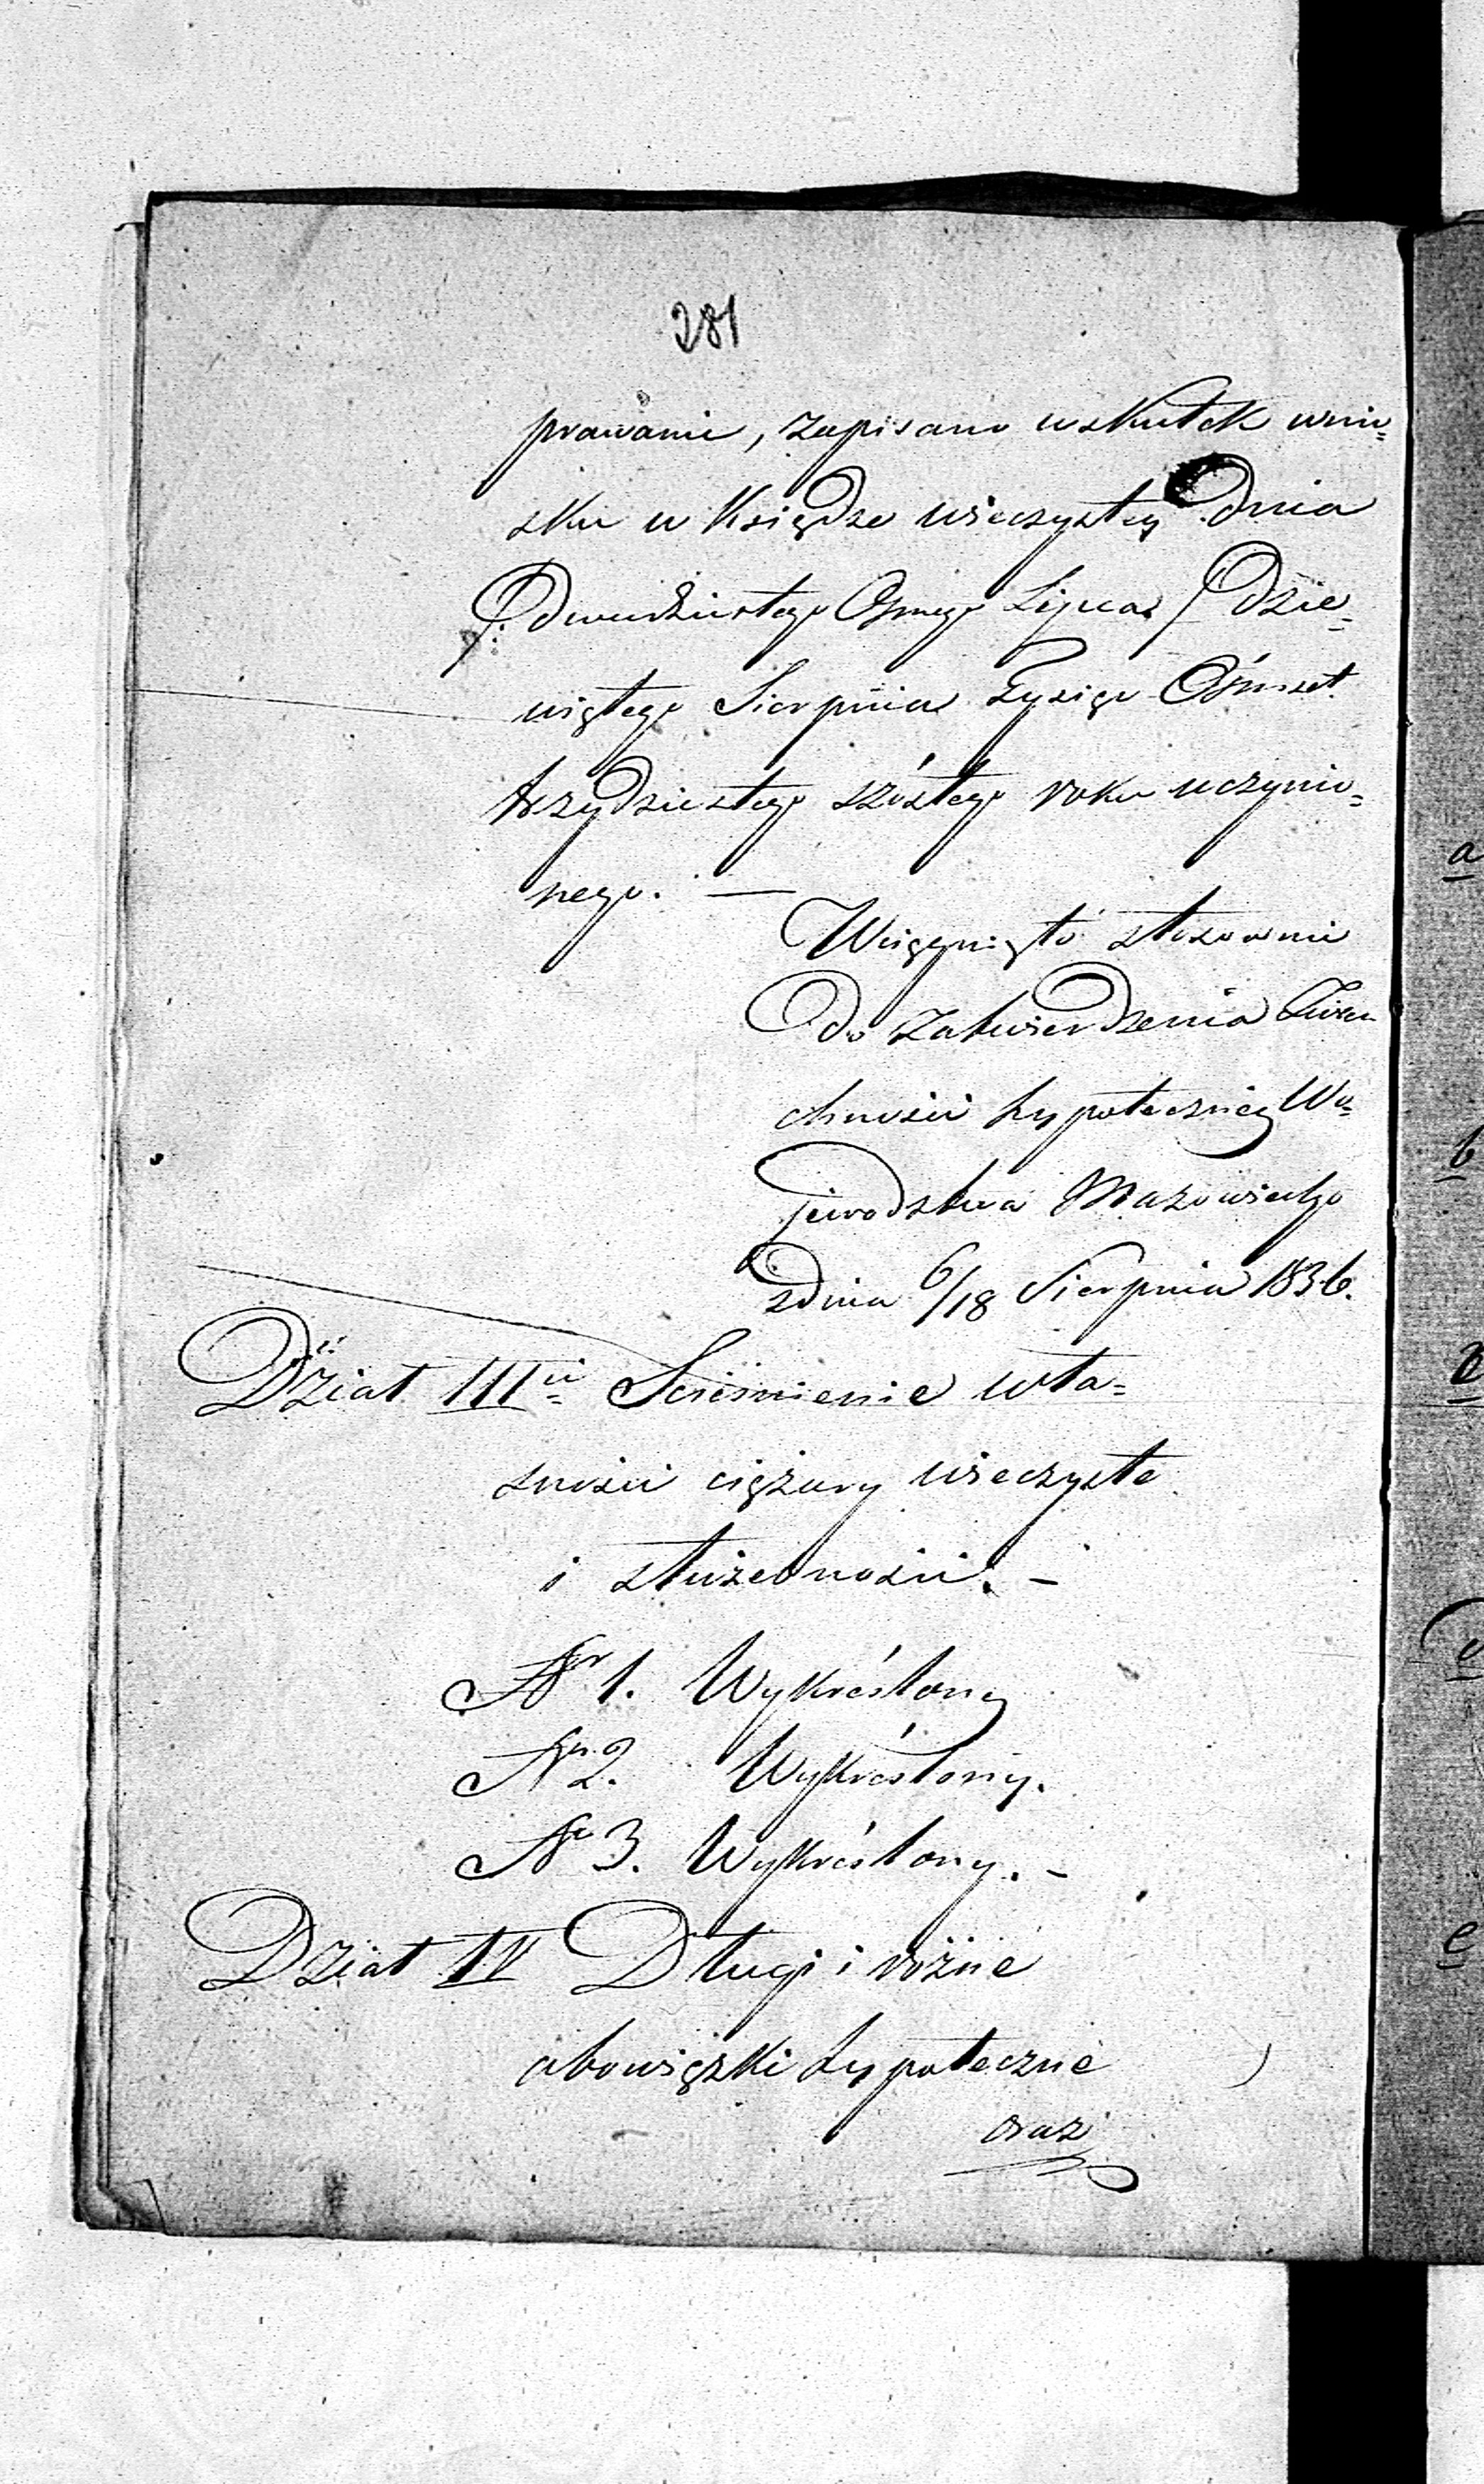 281
prawami, zapisano wskutek wnio=
sku w Księdze wieczystey dnia
dwudziestego Osmego Lipca / dzie=
wiątego Sierpnia Tysiąc Ośmset
trzydziestego szóstego roku uczynio=
nego. —
Wciągnięto stosownie
do zatwierdzenia Zwierz
chności hypoteczney Wo=
jewodztwa Mazowieckgo
zdnia 6/18 Sierpnia 1836.
Dział III Sciesnienie wła=
sności ciężary wieczyste
i służebności. —
Nr 1. Wykréslony
Nr 2. Wykréslony.
Nr 3. Wykréslony. —
Dział IV Długi i różne
obowiązki hypoteczne
oraz
a
b
e